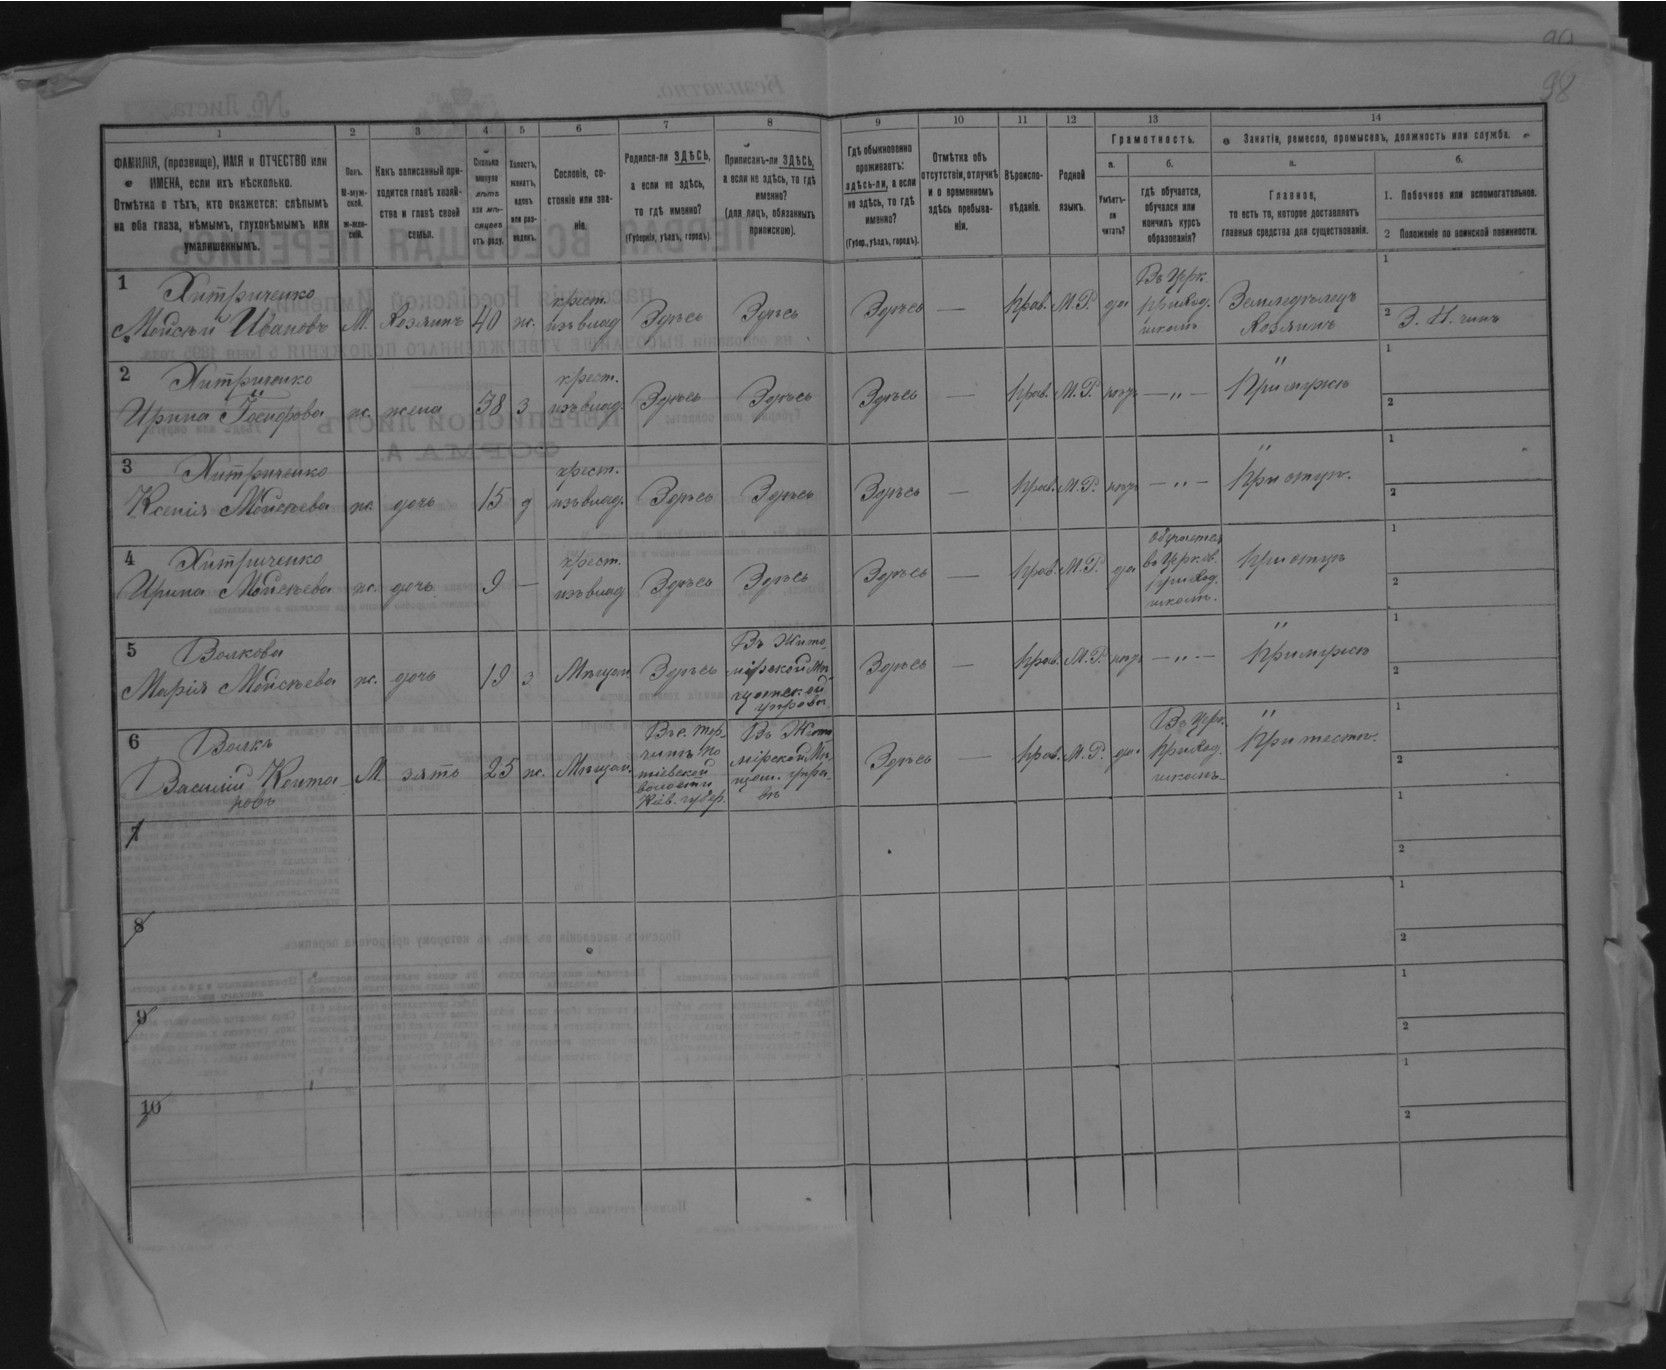 98
1 2 3 4 5 6 7 8 9 10 11 12 13 14
ФАМИЛІЯ, (прозвище), ИМЯ и ОТЧЕСТВО или
ИМЕНА, если ихъ нѣсколько.
Отмѣтка о тѣхъ, кто окажется: слѣпымъ
на оба глаза, нѣмымъ, глухонѣмымъ или
умалишеннымъ.
Полъ.
М-муж-
ской.
ж-жен-
скій.
Какъ записанный при-
ходится главѣ хозяй-
ства и главѣ своей
семьи.
Сколько
минуло
лѣтъ
или мѣ-
сяцевъ
отъ роду.
Холостъ,
женатъ,
вдовъ
или раз-
веденъ.
Сословіе, со-
стояніе или зва-
ніе.
Родился-ли ЗДѢСЬ,
а если не здѣсь,
то гдѣ именно?
(Губернія, уѣздъ, городъ).
Приписанъ-ли ЗДѢСЬ,
а если не здѣсь, то гдѣ
именно?
(для лицъ, обязанныхъ
припискою).
Гдѣ обыкновенно
проживаетъ:
здѣсь-ли, а если
не здѣсь, то гдѣ
именно?
(Губер., уѣздъ, городъ).
Отмѣтка объ
отсутствіи, отлучкѣ
и о временномъ
здѣсь пребыва-
ніи.
Вѣроиспо-
вѣданіе.
Родной
языкъ.
Грамотность.
а.
Умѣетъ-
ли
читать?
б.
гдѣ обучается,
обучался или
кончилъ курсъ
образованія?
Занятіе, ремесло, промыселъ, должность или служба.
а.
Главное,
то есть то, которое доставляетъ
главныя средства для существованія.
б.
1. Побочное или вспомогательное.
2 Положеніе по воинской повинности.
1 Хитриченко
Мойсѣй Ивановъ М. Хозяинъ 40 ж. крест. изъ влад Здѣсь Здѣсь Здѣсь — Прав. М.Р. да Въ Црк. приход. школѣ Земледѣлецъ Хозяинъ 1 2
2 Хитриченко
Ирина Іосифова ж. жена 38 з крест. изъ влад. Здѣсь Здѣсь Здѣсь — Прав. М.Р. нѣтъ — „ — „ При мужѣ 1 2
3 Хитриченко
Ксенія Мойсѣева ж. дочь 15 д крест. изъ влад. Здѣсь Здѣсь Здѣсь — Прав. М.Р. нѣтъ — „ — „ При отцѣ. 1 2
4 Хитриченко
Ирина Мойсѣева ж. дочь 9 — крест. изъ влад Здѣсь Здѣсь Здѣсь — Прав. М.Р. да обучается въ Церков. приход. школѣ. При отцѣ 1 2
5 Волкова
Марія Мойсѣева ж. дочь 19 з Мѣщан. Здѣсь Въ Жито-
мірской Мѣ-
щанской
управѣ Здѣсь — Прав. М.Р. нѣтъ — „ — „ При мужѣ 1 2
6 Волкъ
Василій М зять 25 ж. Мѣщан. волости Кіев. губер. Въ Жито
мірской Мѣ
щан. упра-
вѣ Здѣсь — Прав. М.Р. да Въ Црк. приход. школѣ „ При тестѣ. 1 2
7 1 2
8 1 2
9 1 2
10 1 2